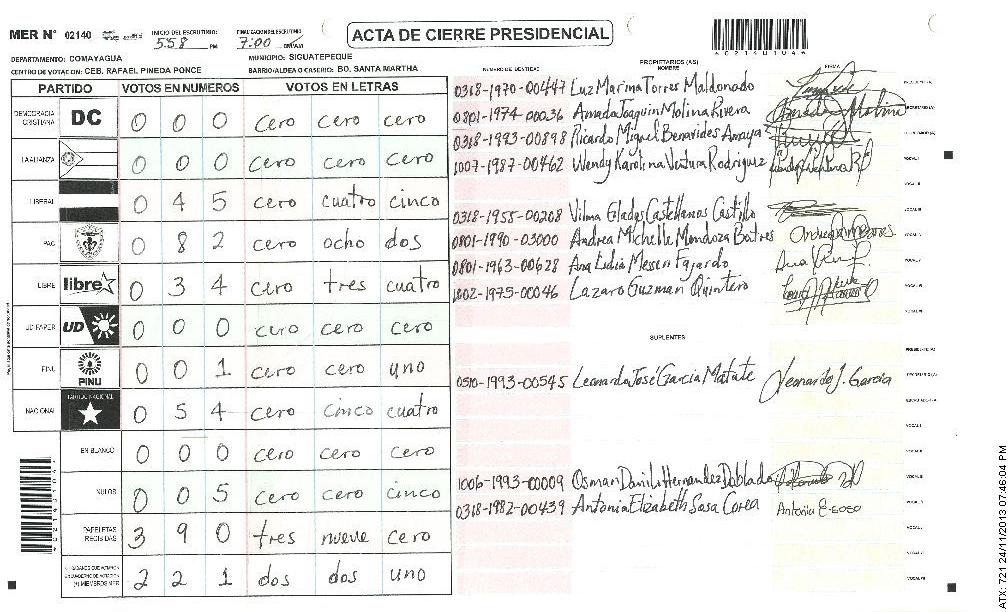 MER N° 02140
INICIO DEL ESCRUTINIO: 5:58 PM
FINALIZACION DEL ESCRUTINIO: 7:00 PM/AM
ACTA DE CIERRE PRESIDENCIAL
DEPARTAMENTO: COMAYAGUA
MUNICIPIO: SIGUATEPEQUE
CENTRO DE VOTACION: CEB. RAFAEL PINEDA PONCE
BARRIO/ALDEA O CASERIO: BO. SANTA MARTHA
PARTIDO VOTOS EN NUMEROS VOTOS EN LETRAS
DEMOCRACIA CRISTIANA DC 0 0 0 cero cero cero
LA ALIANZA 0 0 0 cero cero cero
LIBERAL 0 4 5 cero cuatro cinco
PAC 0 8 2 cero ocho dos
LIBRE libre 0 3 4 cero tres cuatro
UD FAPER UD 0 0 0 cero cero cero
PINU PINU 0 0 1 cero cero uno
NACIONAL PARTIDO NACIONAL 0 5 4 cero cinco cuatro
EN BLANCO 0 0 0 cero cero cero
NULOS 0 0 5 cero cero cinco
PAPELETAS RECIBIDAS 3 9 0 tres nueve cero
CIUDADANOS QUE VOTARON EN CUADERNO DE VOTACION (+) MIEMBROS MER 2 2 1 dos dos uno
NUMERO DE IDENTIDAD PROPIETARIOS (AS) FIRMA
0318-1970-00447 Luz Marina Torres Maldonado
0801-1974-00036 Amada Joaquin Molina Rivera Amada Molina
0318-1993-00898 Ricardo Miguel Benavides Amaya
1007-1987-00462 Wendy Karolina Ventura Rodriguez
0318-1955-00208 Vilma Glades Castellanos Castillo
0801-1990-03000 Andrea Michelle Mendoza Batres
0801-1963-00628 Ana Lidia Messen Fajardo
1002-1975-00046 Lazaro Guzman Quintero
SUPLENTES
0510-1993-00545 Leonardo José Garcia Matute Leonardo J. Garcia
1006-1993-00009 Osman Danilo Hernandez Doblado
0318-1982-00439 Antonia Elizabeth Sosa Corea Antonia E. Sosa
ATX: 721 24/11/2013 07:46:04 PM